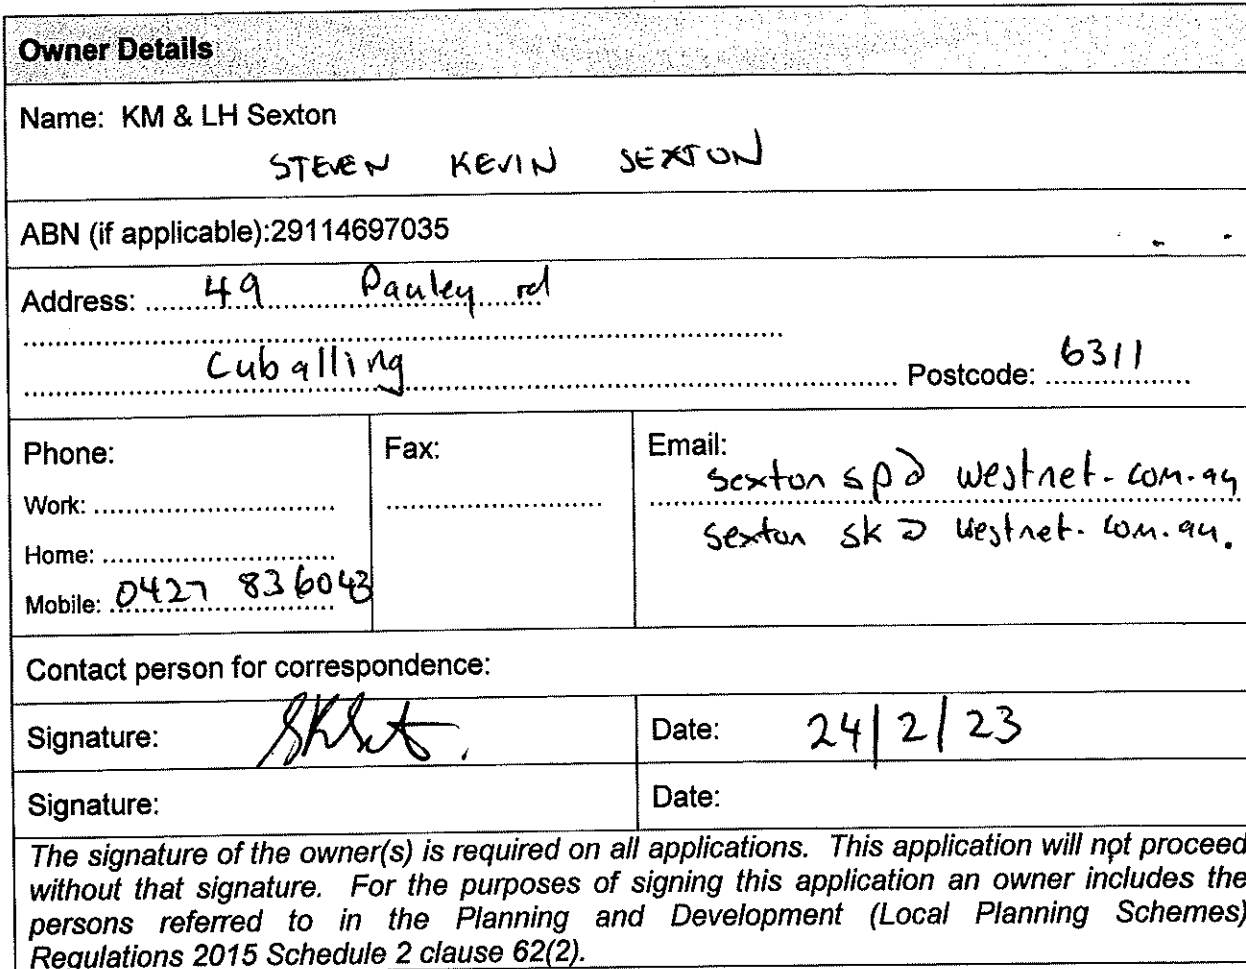 Owner Details
Name: KM & LH Sexton
STEVEN KEVIN SEXTON
ABN (if applicable):29114697035
Address: 49 Pauley rd
Cuballing Postcode: 6311
Phone:
Work:
Home:
Mobile: 0427 836043
Fax:
Email:
sextonsp@westnet.com.au
sextonsk@westnet.com.au.
Contact person for correspondence:
Signature:
Date: 24/2/23
Signature:
Date:
The signature of the owner(s) is required on all applications. This application will not proceed
without that signature. For the purposes of signing this application an owner includes the
persons referred to in the Planning and Development (Local Planning Schemes)
Regulations 2015 Schedule 2 clause 62(2).